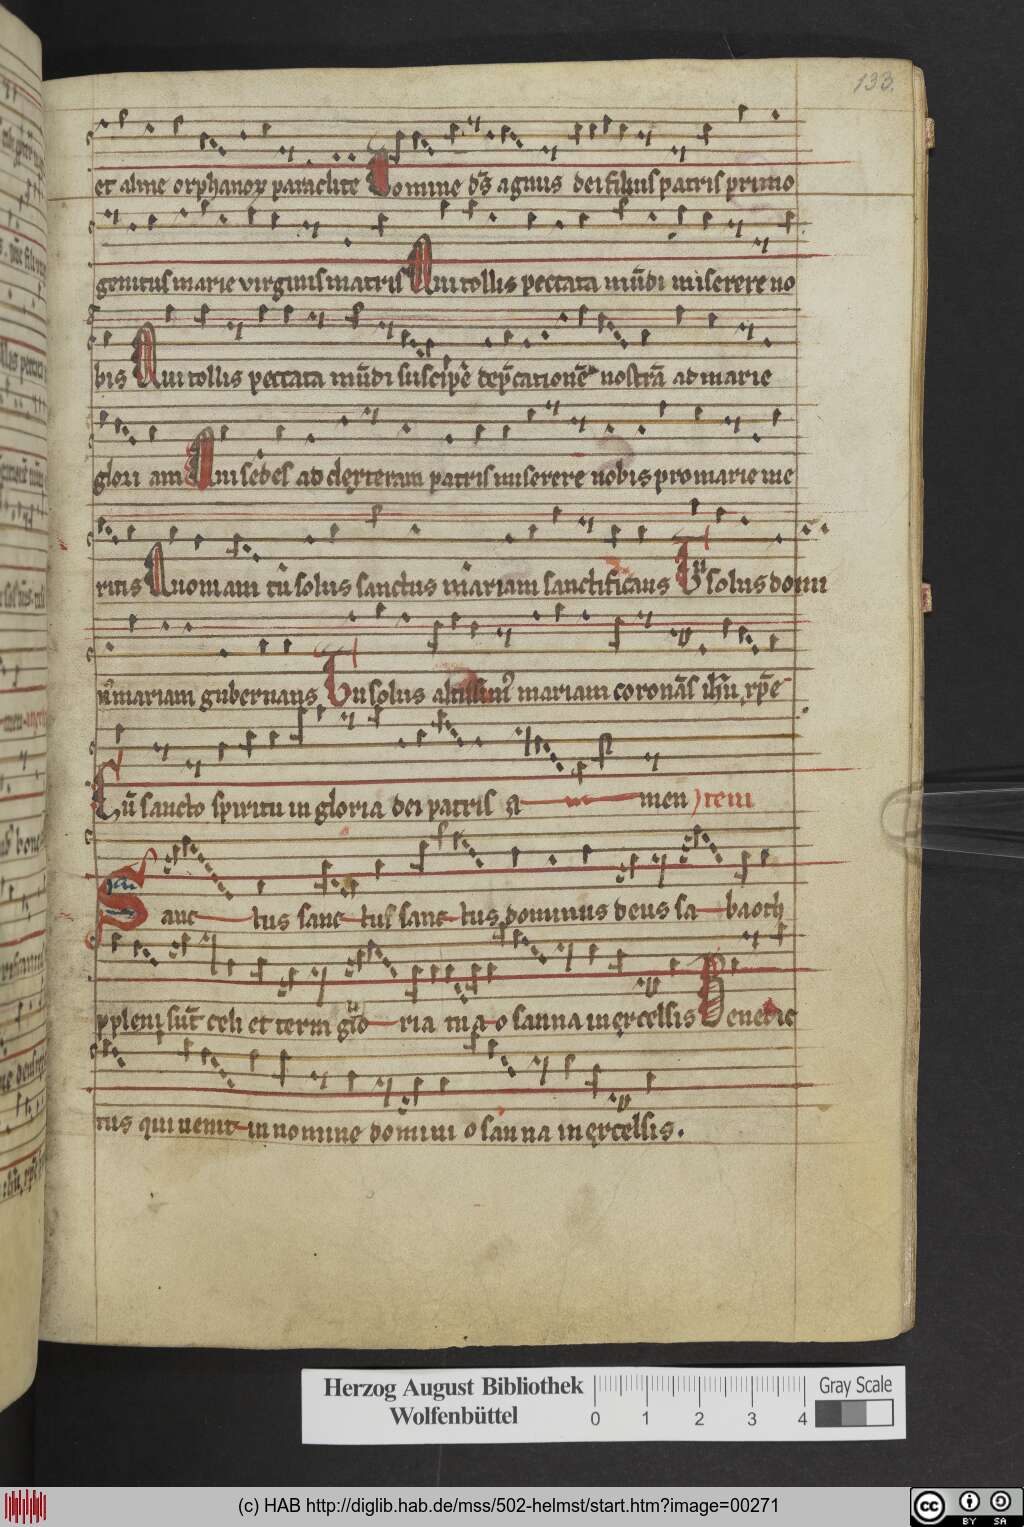 133.
et alme orphanoꝝ paraclite Domine dˢ agnus dei filius patris primo
genitus marie virginis matris Qui tollis peccata mūdi miserere no
bis Qui tollis peccata mūdi suscipe dep̄cationē nostrā ad marie
glori am Qui sedes ad dexteram patris miserere nobis pro marie me
ritis Quoniam tū solus sanctus mariam sanctificans Tu solus domi
nꝰ mariam gubernans Tu solus altissimꝰ mariam coronās ih̄u xp̄e
Cū sancto spiritu in gloria dei patris a men Item
Sanc tus sanc tus sanc tus dominus deus sa baoth
pleni sūt celi et terra glo ria tu a o sanna in excelsis Benedic
tus qui uenit in nomine domini o sanna in excelsis.
Herzog August Bibliothek
Wolfenbüttel
0 1 2 3 4
Gray Scale
(c) HAB http://diglib.hab.de/mss/502-helmst/start.htm?image=00271
cc BY SA